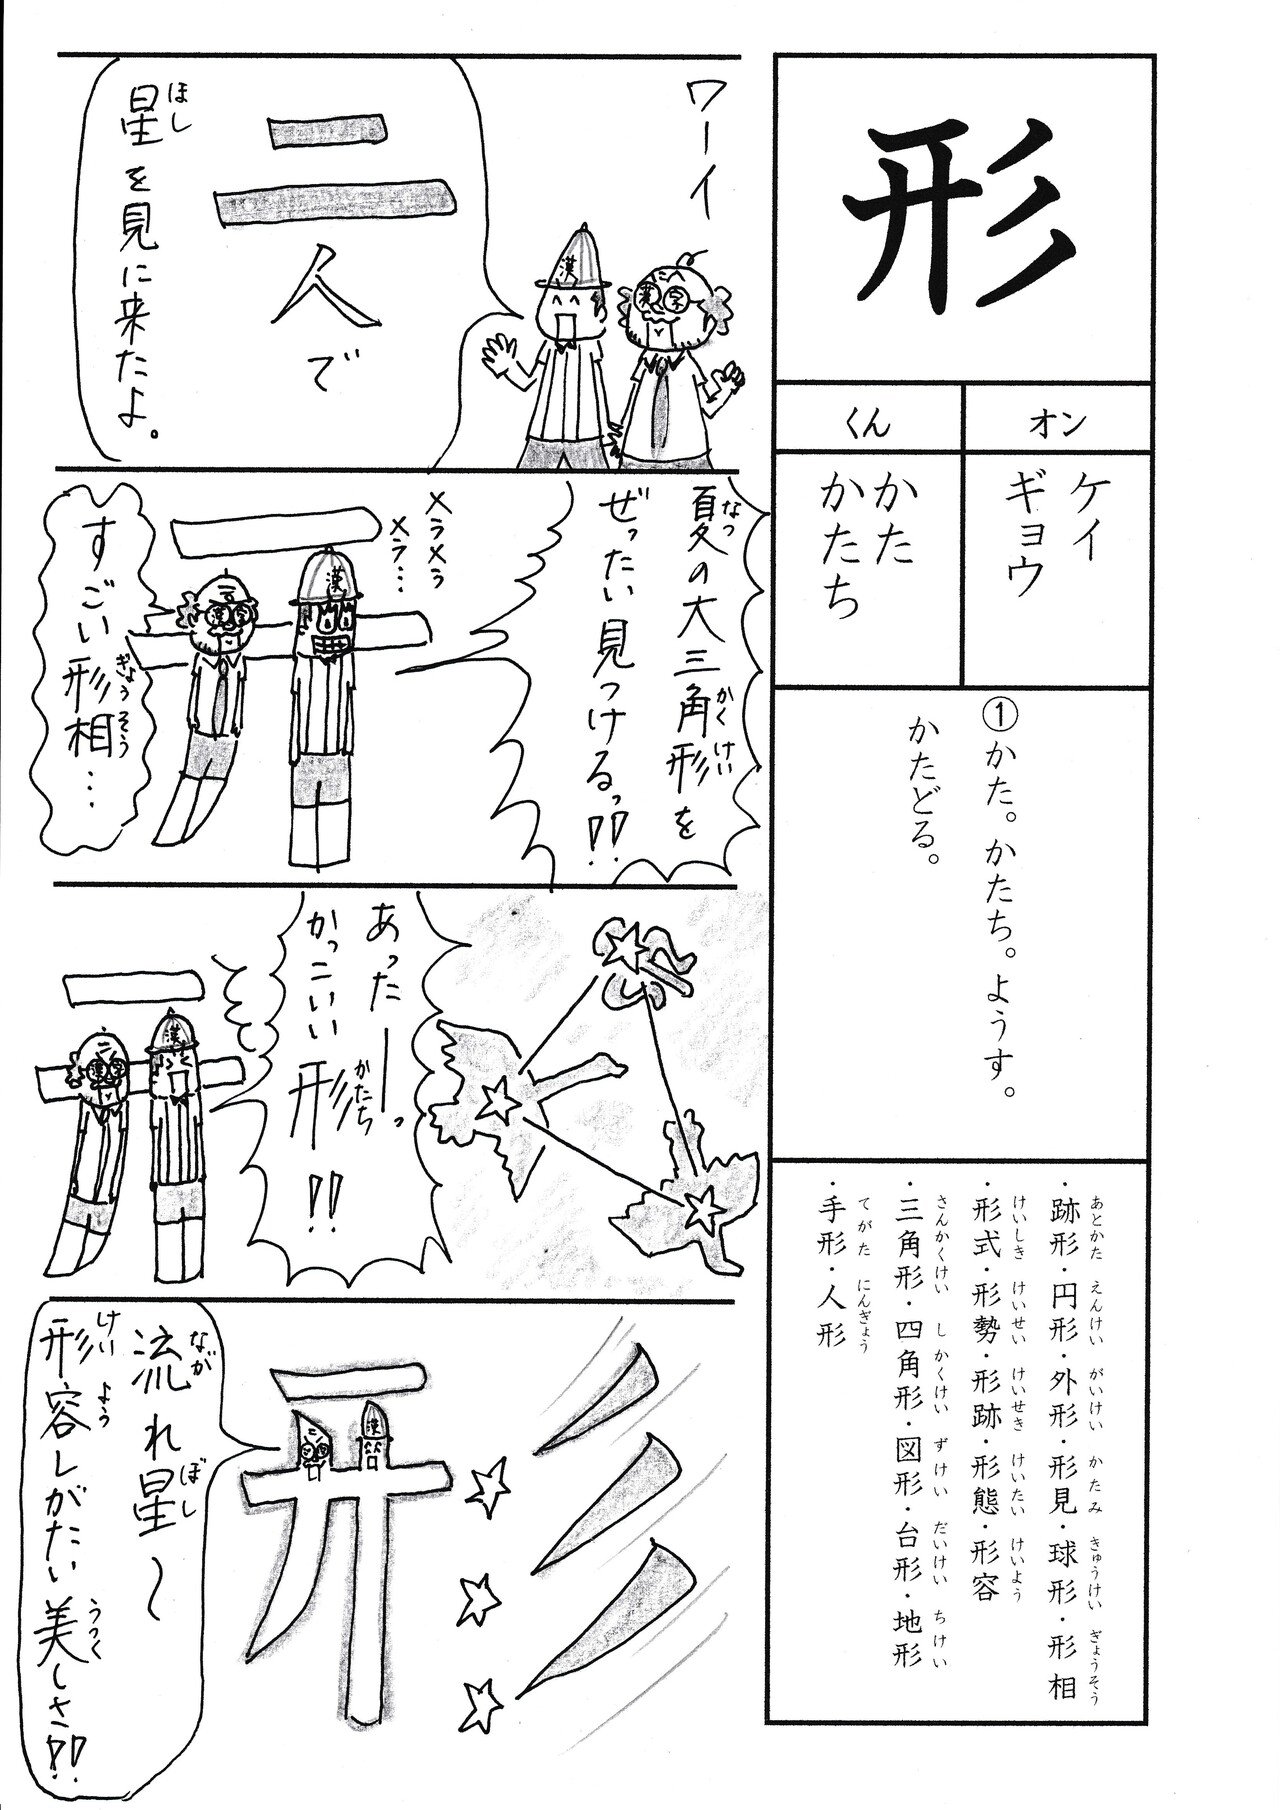 形
オン
ケイ
ギョウ
くん
かた
かたち
①かた。かたち。ようす。
かたどる。
・跡形・円形・外形・形見・球形・形相
あとかた えんけい がいけい かたみ きゅうけい ぎょうそう
・形式・形勢・形跡・形態・形容
けいしき けいせい けいせき けいたい けいよう
・三角形・四角形・図形・台形・地形
さんかくけい しかくけい ずけい だいけい ちけい
・手形・人形
てがた にんぎょう
ワーイ
漢
漢字
二人で
星を見に来たよ。
ほし
夏の大三角形を
なつ かくけい
ぜったい見つけるっ!!
メラメラ
メラ…
漢
漢字
すごい形相…
ぎょうそう
あったーっ
かっこいい形!!
かたち
漢
漢字
漢
流れ星〜
なが ぼし
形容しがたい美しさ!!
けいよう うつく